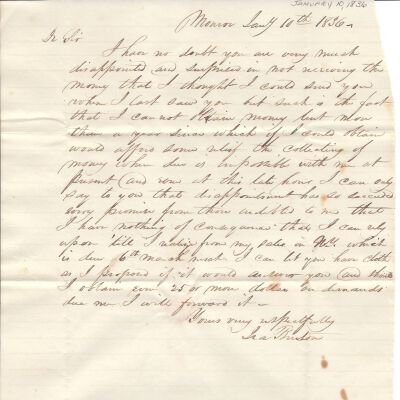 JANUARY 10, 1836
Monroe Jany 10th 1836
Dr Sir
I have no doubt you are very much
disappointed and surprised in not receiving the
money that I thought I could send you
when I last saw you but such is the fact
that I can not obtain money lent more
than a year since which if I could obtain
would afford some relief the collecting of
money when due is impossible with me at
present and even at this late hour I can only
say to you that disappointment has so succeeded
every promise from those indebted to me that
I have nothing of consequence that I can rely
upon 'till I realize from my sales in NY which
is due 6th March next I can let you have cloth
as I proposed if it would answer you and should
I obtain even 25 or more dollars on demands
due me I will forward it
Yours very respectfully
Ira